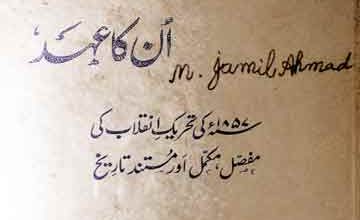 اُن کا عہد،
M. Jamil Ahmad
۱۸۵۷ء کی تحریکِ انقلاب کی
مفصّل، مکمّل اور مُستند تاریخ